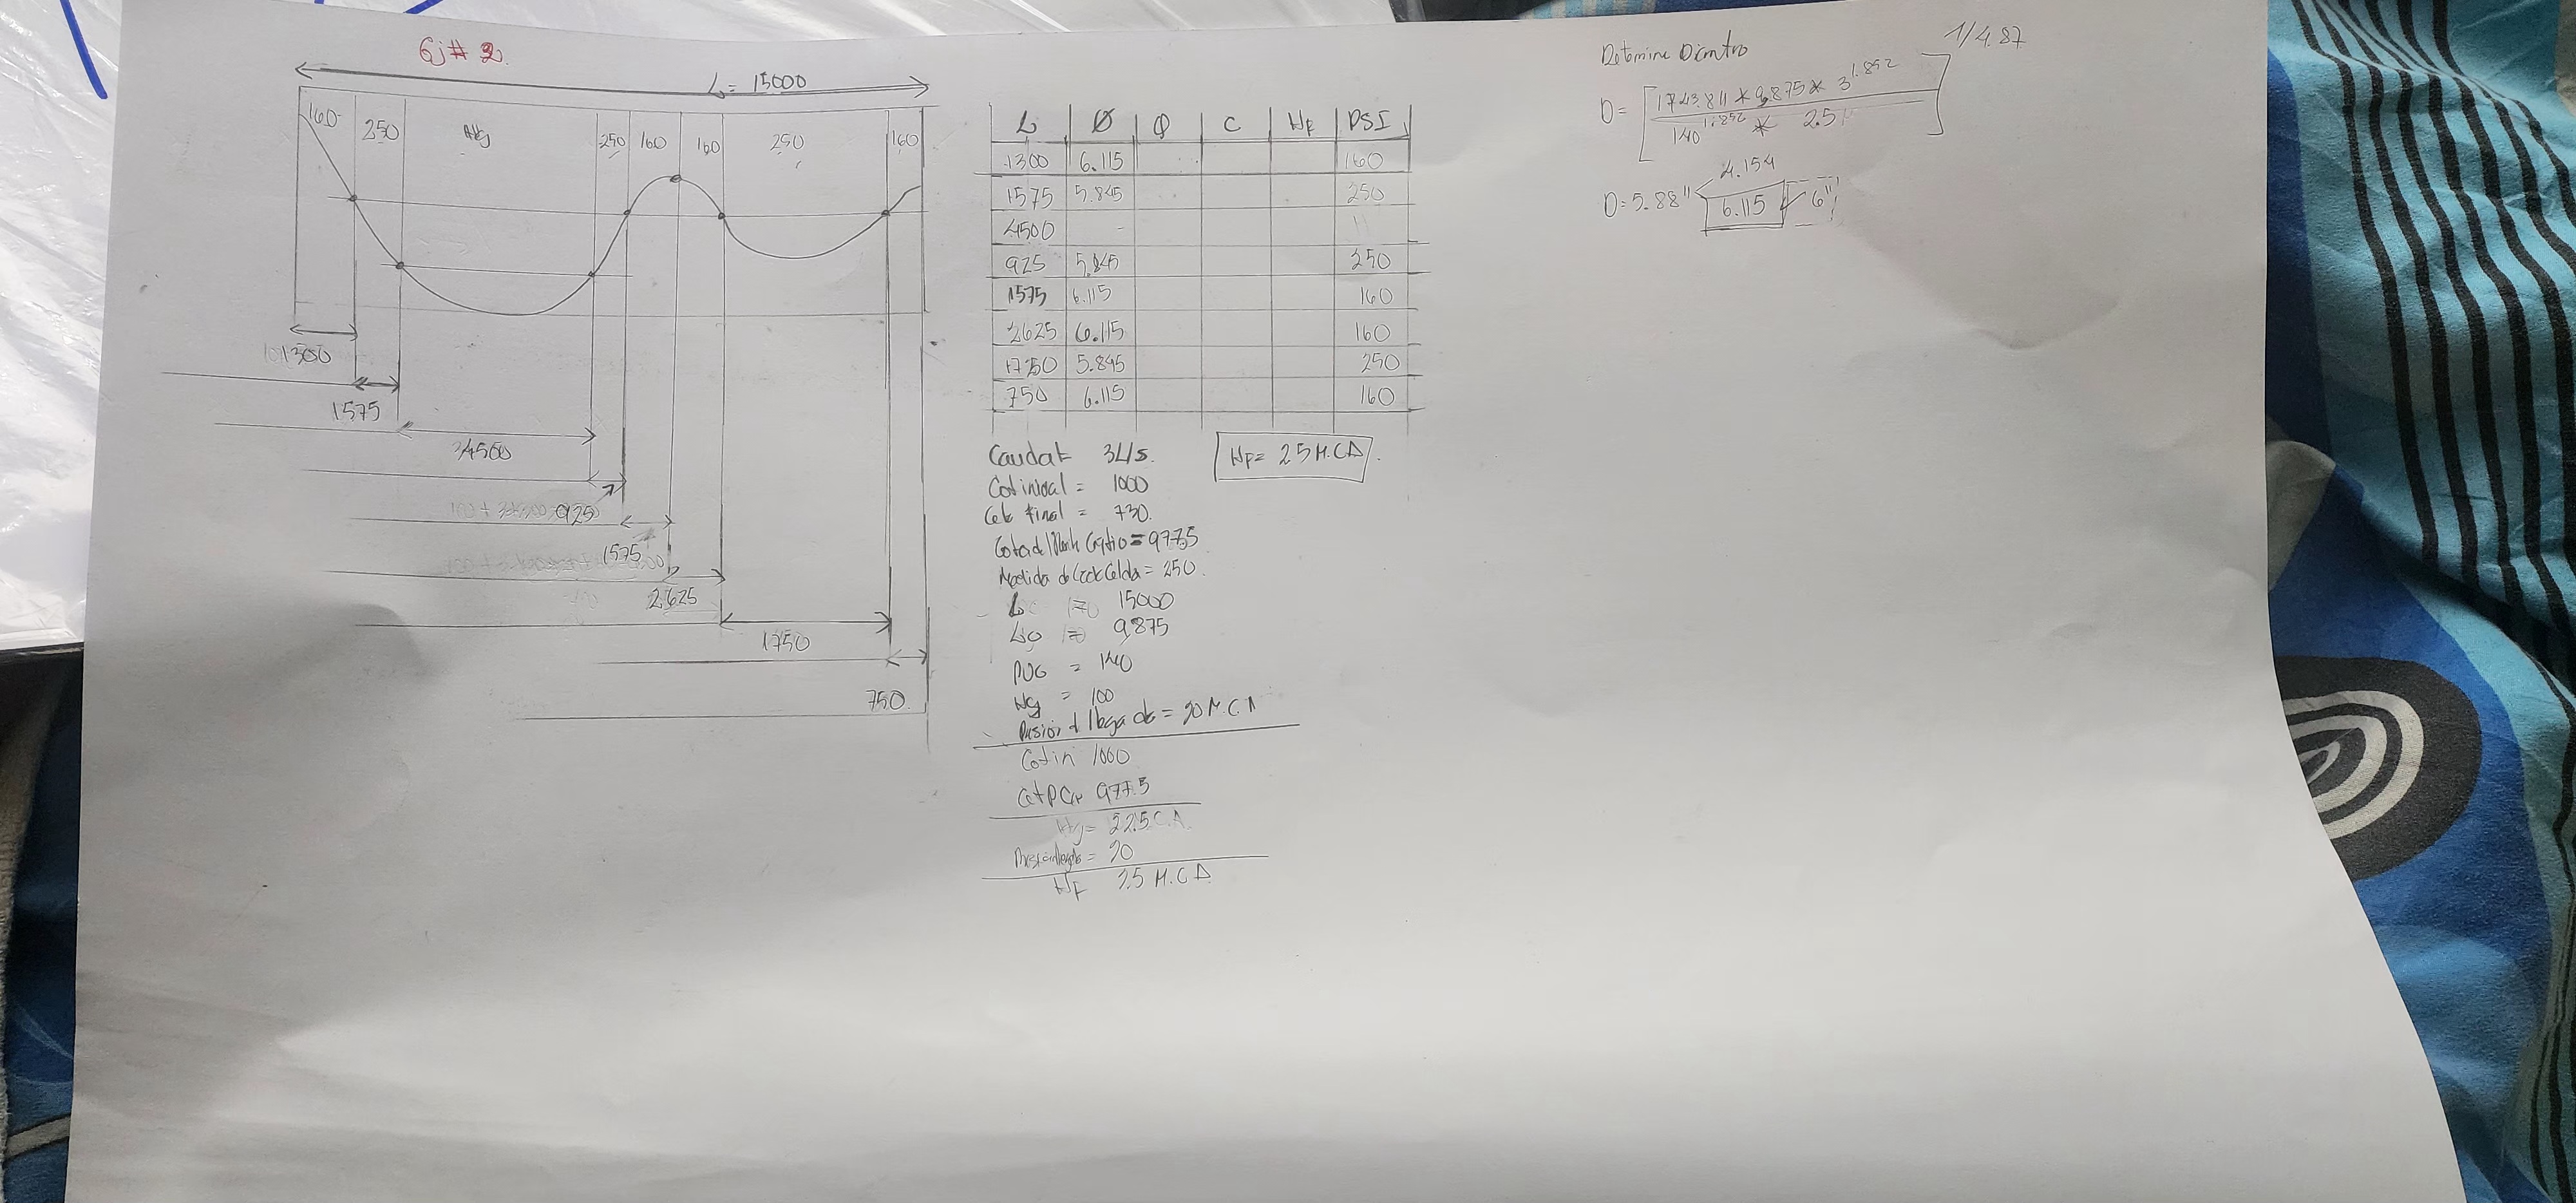 Ej# 2.
L = 15000
160 250 Hg 250 160 160 250 160
1300
1575
4500
925
1575
2625
1750
750.
L Ø Q C HF PSI
1300 6.115 160
1575 5.845 250
4500 - 11
925 5.845 250
1575 6.115 160
2625 6.115 160
1750 5.845 250
750 6.115 160
Caudal = 3L/s.
HF= 2.5 M.C.A.
Cot inicial = 1000
Cota final = 730.
Cota del Punto Critico = 977.5
Medida de Cada Celda = 250.
L = 15000
= 9,875
PVC = 140
Hg = 100
Presion d llegada = 20 M.C.A
Cot in 1000
Cot P Cr 977.5
Hg = 22.5 C.A.
Presion llegada = 20
HF 2.5 M.C.A.
Determine Diametro
D = [ 1743.811 * 9,875 * 3^1.852 / 140^1.852 * 2.5 ] 1/4.87
4.154
D = 5.88" 6.115 6"